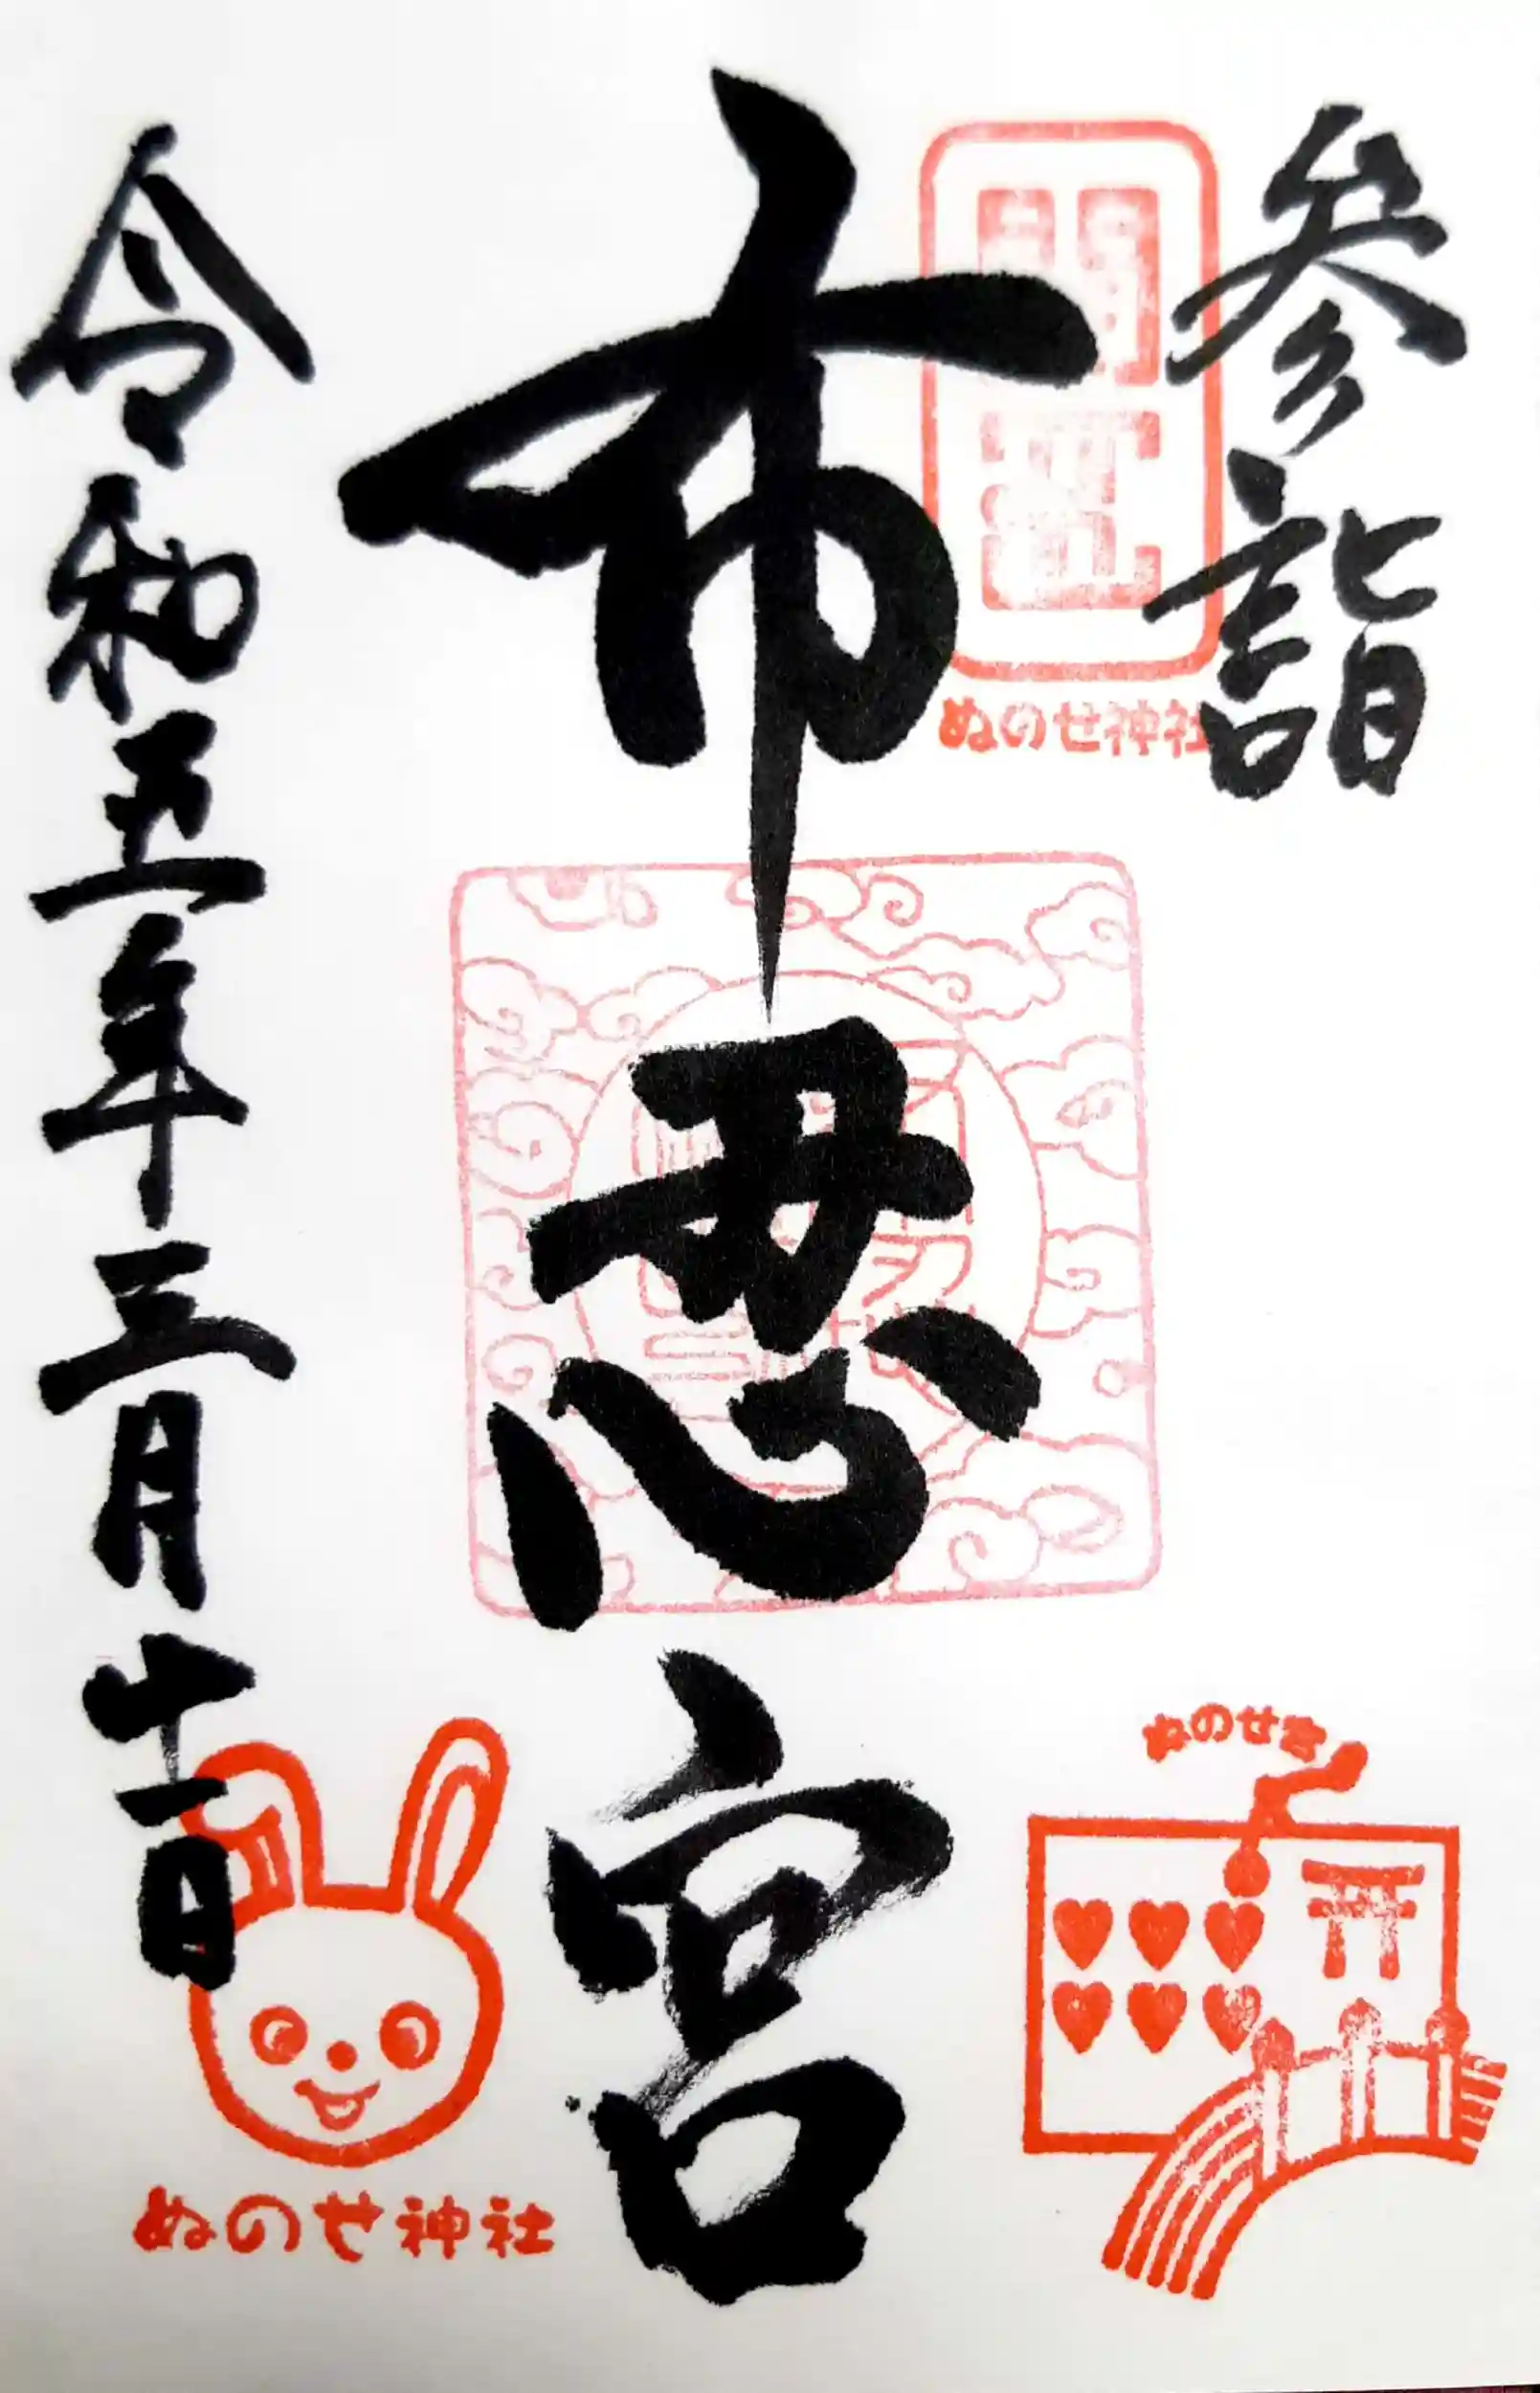 参詣
ぬのせ神社
布忍宮
ぬのせ宮
令和五年三月十一日
ぬのせ神社